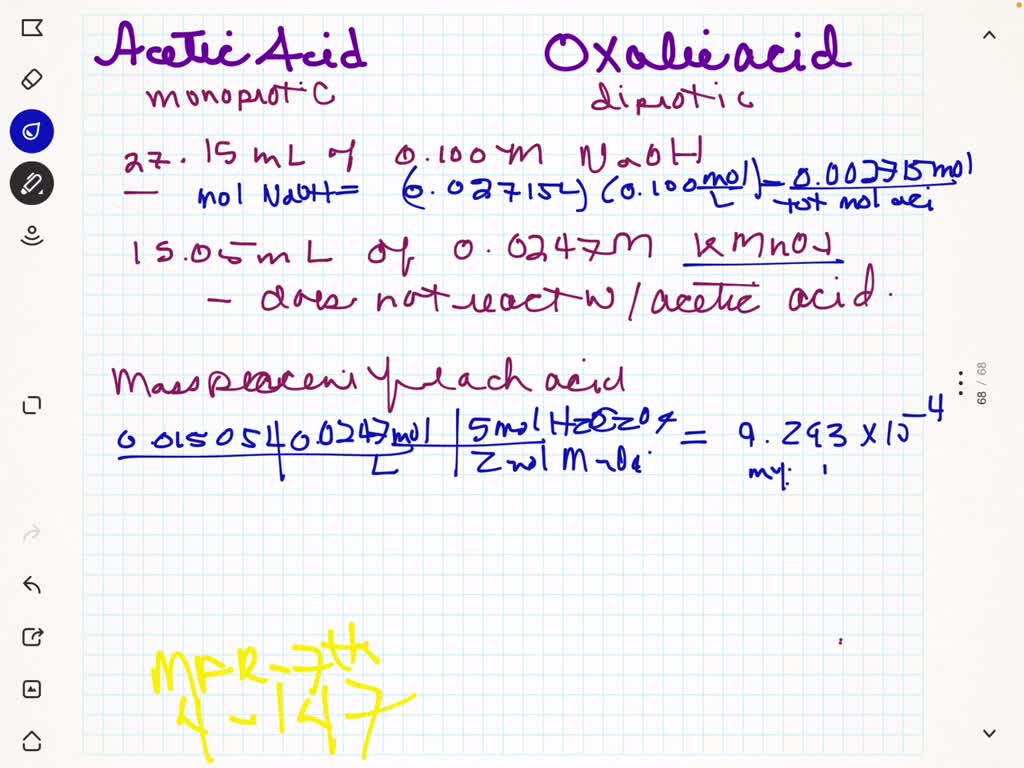 Acetic Acid Oxalic acid
monoprotic diprotic
27.15 mL of 0.100 M NaOH
mol NaOH = (0.02715 L) (0.100 mol/L) = 0.002715 mol
tot mol aci
15.05 mL of 0.0247 M KMnO4
- does not react w/ acetic acid.
Mass of each acid
0.01505 L 0.0247 mol 5 mol H2C2O4 = 9.293 x 10^-4
L 2 mol
68 / 68
MFR-7th
4-147